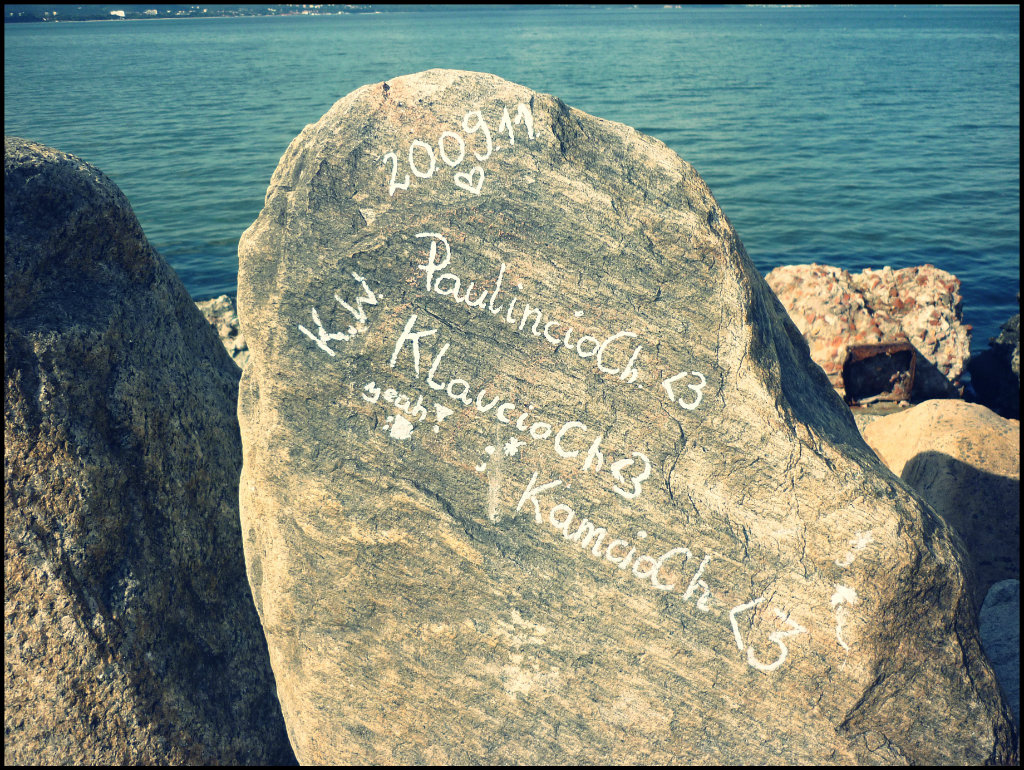 20.09.11
♡
PaulincioCh <3
K.W.
KLaucioCh <3
yeah!
KamcioCh <3